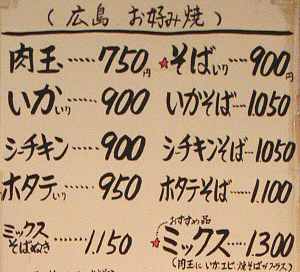 （広島 お好み焼）
肉玉……750円 ☆そばいり…900円
いかいり……900 いかそば…1.050
シーチキン……900 シーチキンそば…1050
ホタテいり……950 ホタテそば…1.100
おすすめ品
ミックスそばぬき……1.150 ☆ミックス……1300
(肉玉にいか.エビ.焼そばがプラス)